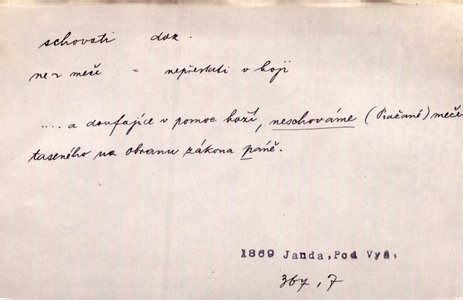 schovati dok.
ne z meče = nepřestati v boji
.... a doufajíce v pomoc boží, neschováme (Pražané) meče
taseného na obranu zákona páně.
1869 Janda, Pod Vyš.
367, 7